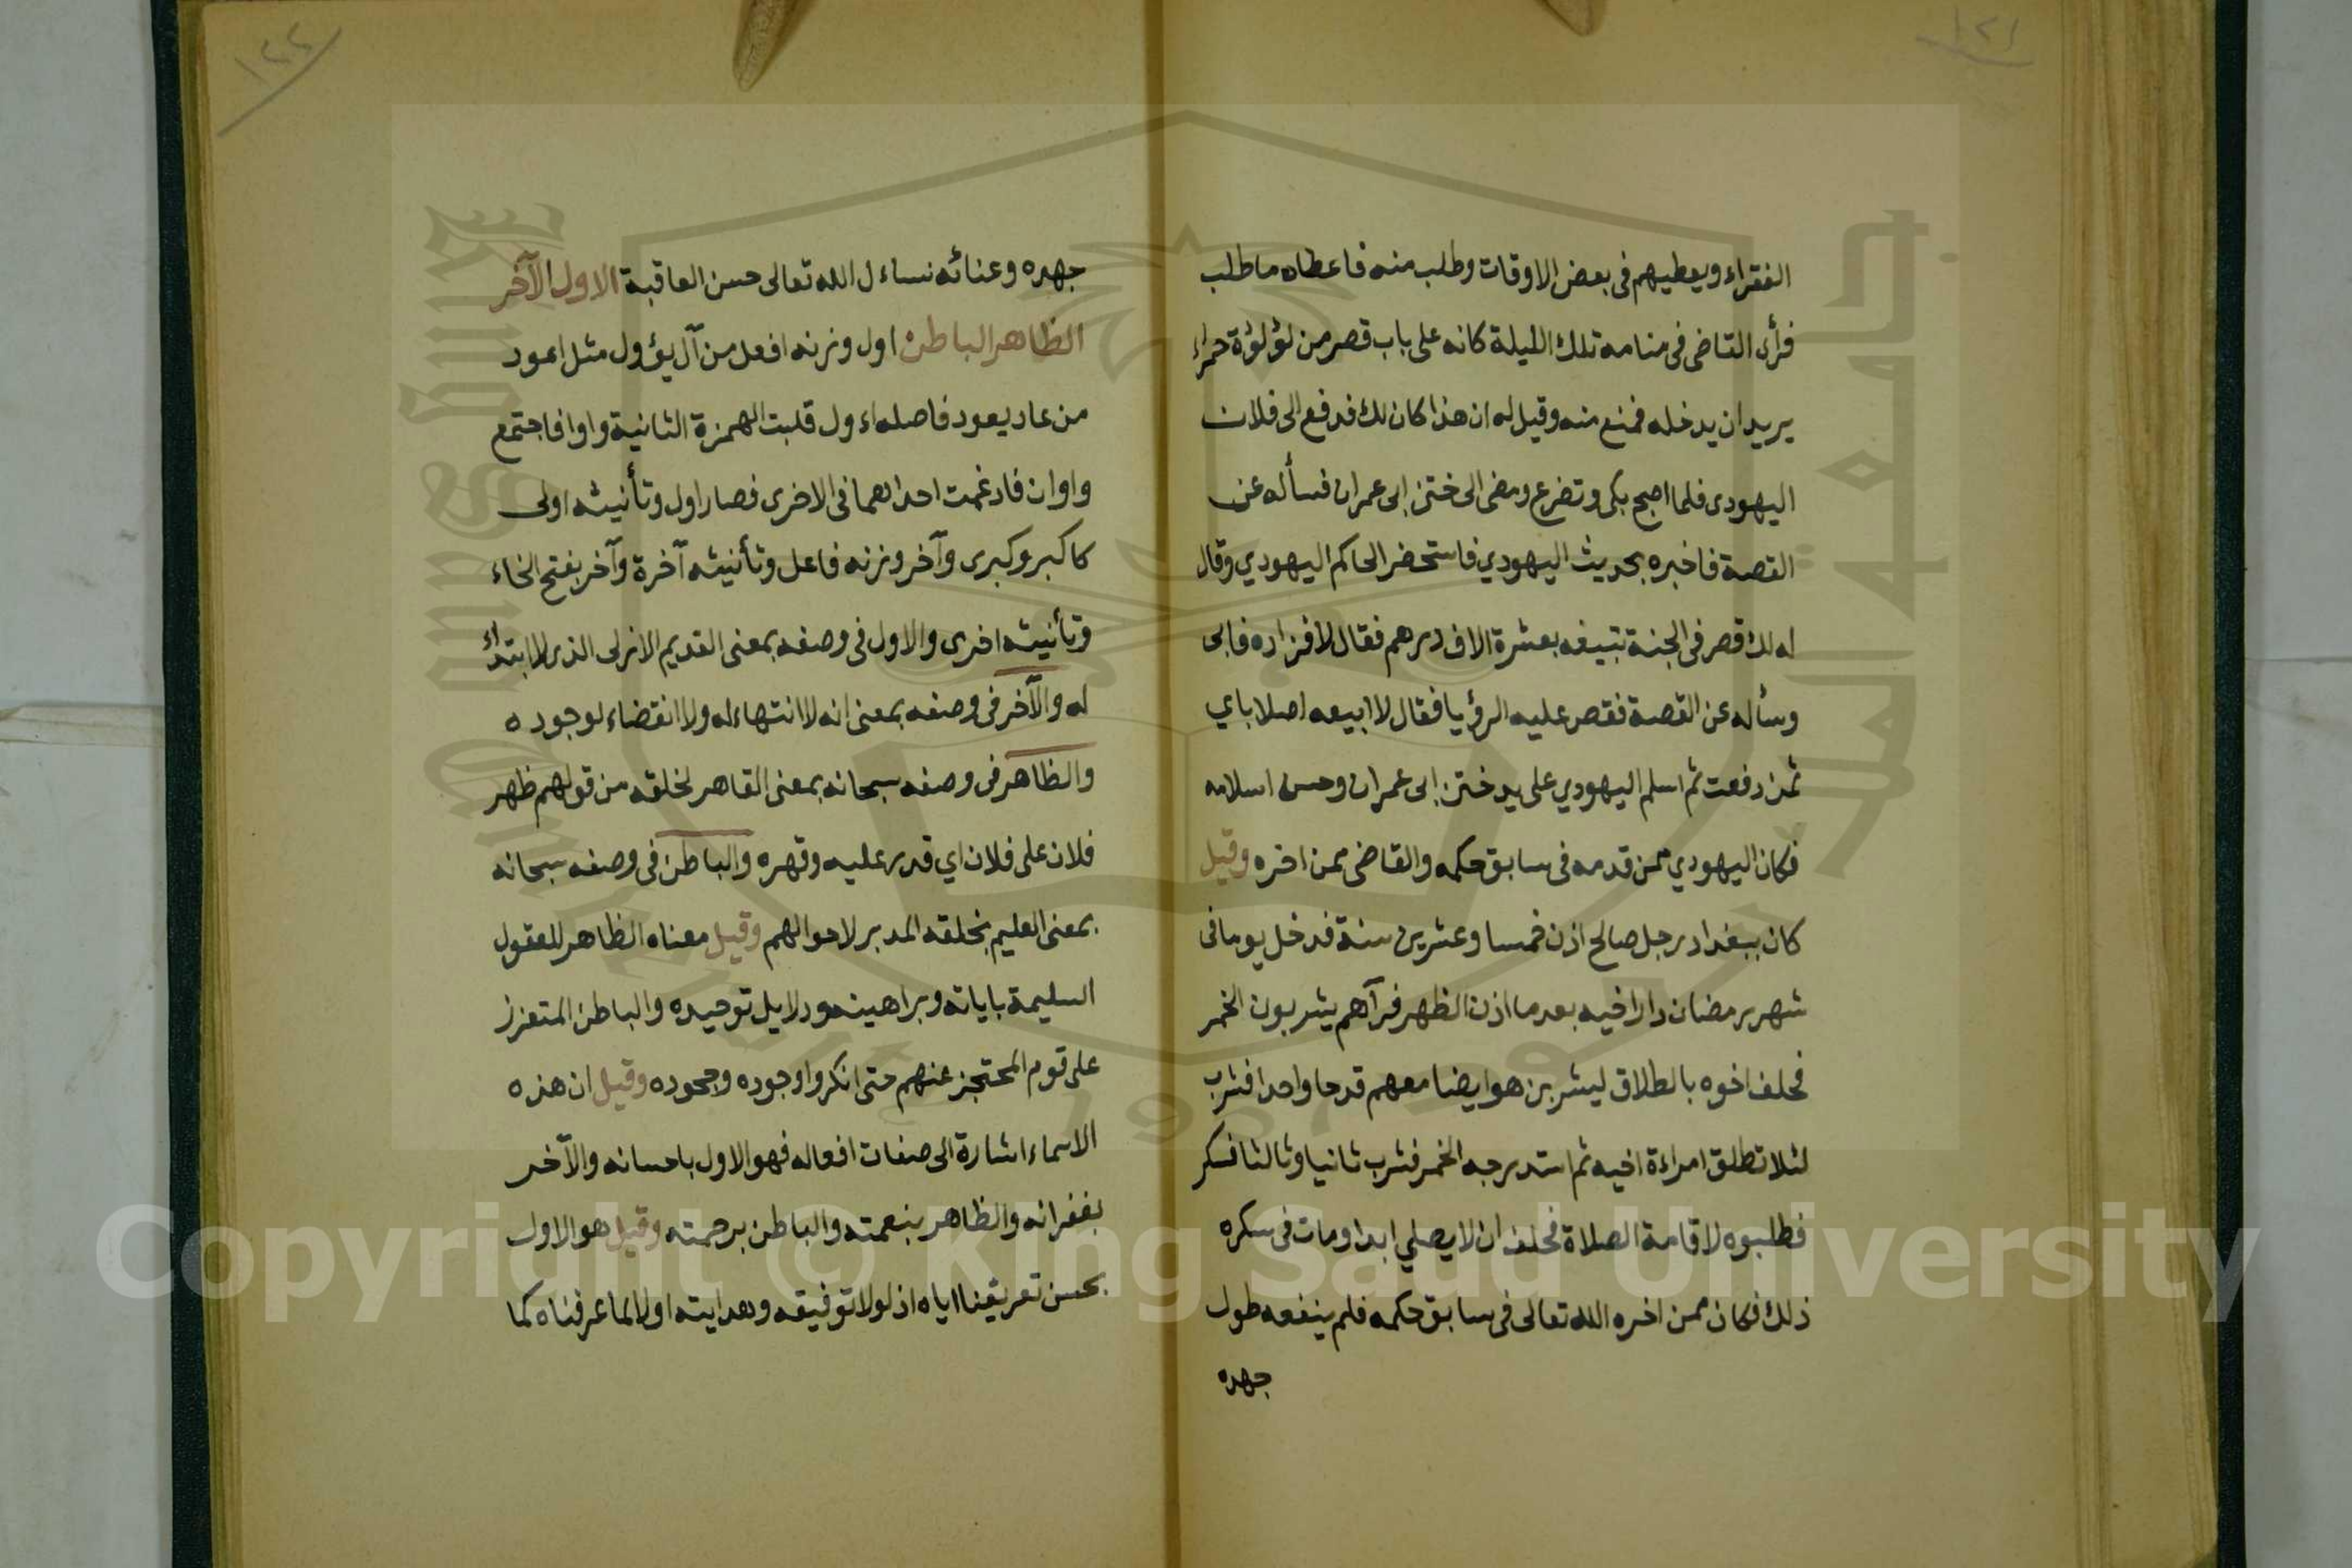 ١٢١
الفقراء ويعطيهم فى بعض الاوقات وطلب منه فاعطاه ما طلب
فرأى القاضى فى منامه تلك الليلة كانه على باب قصر من لؤلؤة حمراء
يريد ان يدخله فمنع منه وقيل له ان هذا كان لك فدفع الى فلان
اليهودى فلما اصبح بكى وتضرع ومضى الى ختن ابى عمران فسأله عن
القصة فاخبره بحديث اليهودي فاستحضر الحاكم اليهودي وقال
له لك قصر فى الجنة تبيعه بعشرة الاف درهم فقال لا فزاده فابى
وسأله عن القصة فقص عليه الرؤيا فقال لا ابيعه اصلا باي
ثمن دفعت ثم اسلم اليهودي على يد ختن ابى عمران وحسن اسلامه
فكان اليهودي ممن قدمه فى سابق حكمه والقاضى ممن اخره وقيل
كان ببغداد رجل صالح اذن خمسا وعشرين سنة فدخل يوما فى
شهر رمضان دار اخيه بعد ما اذن الظهر فرآهم يشربون الخمر
فحلف اخوه بالطلاق ليشربن هو ايضا معهم قدحا واحدا فشرب
لئلا تطلق امراءة اخيه ثم استدرجه الخمر فشرب ثانيا وثالثا فسكر
فطلبوه لاقامة الصلاة فحلف ان لا يصلي ابدا ومات فى سكره
ذلك فكان ممن اخره الله تعالى فى سابق حكمه فلم ينفعه طول
جهده
١٢٢
جهده وعنائه نساءل الله تعالى حسن العاقبة الاول الآخر
الظاهر الباطن اول وزنه افعل من آل يؤول مثل اعود
من عاد يعود فاصله اءول قلبت الهمزة الثانية واوا فاجتمع
واوان فادغمت احداهما فى الاخرى فصار اول وتأنيثه اولى
كاكبر وكبرى وآخر وزنه فاعل وتأنيثه آخرة وآخر بفتح الخاء
وتأنيثه اخرى والاول فى وصفه بمعنى القديم الازلى الذى لا ابتداء
له والآخر فى وصفه بمعنى انه لا انتهاء له ولا انقضاء لوجوده
والظاهر فى وصفه سبحانه بمعنى القاهر لخلقه من قولهم ظهر
فلان على فلان اي قدر عليه وقهره والباطن فى وصفه سبحانه
بمعنى العليم بخلقه المدبر لاحوالهم وقيل معناه الظاهر للعقول
السليمة باياته وبراهينه ودلايل توحيده والباطن المتعزز
على قوم المحتجز عنهم حتى انكروا وجوده وجحوده وقيل ان هذه
الاسماء اشارة الى صفات افعاله فهو الاول باحسانه والآخر
بغفرانه والظاهر بنعمته والباطن برحمته وقيل هو الاول
بحسن تعريفنا اياه اذ لولا توفيقه وهدايته اولا لما عرفناه كما
Copyright © King Saud University